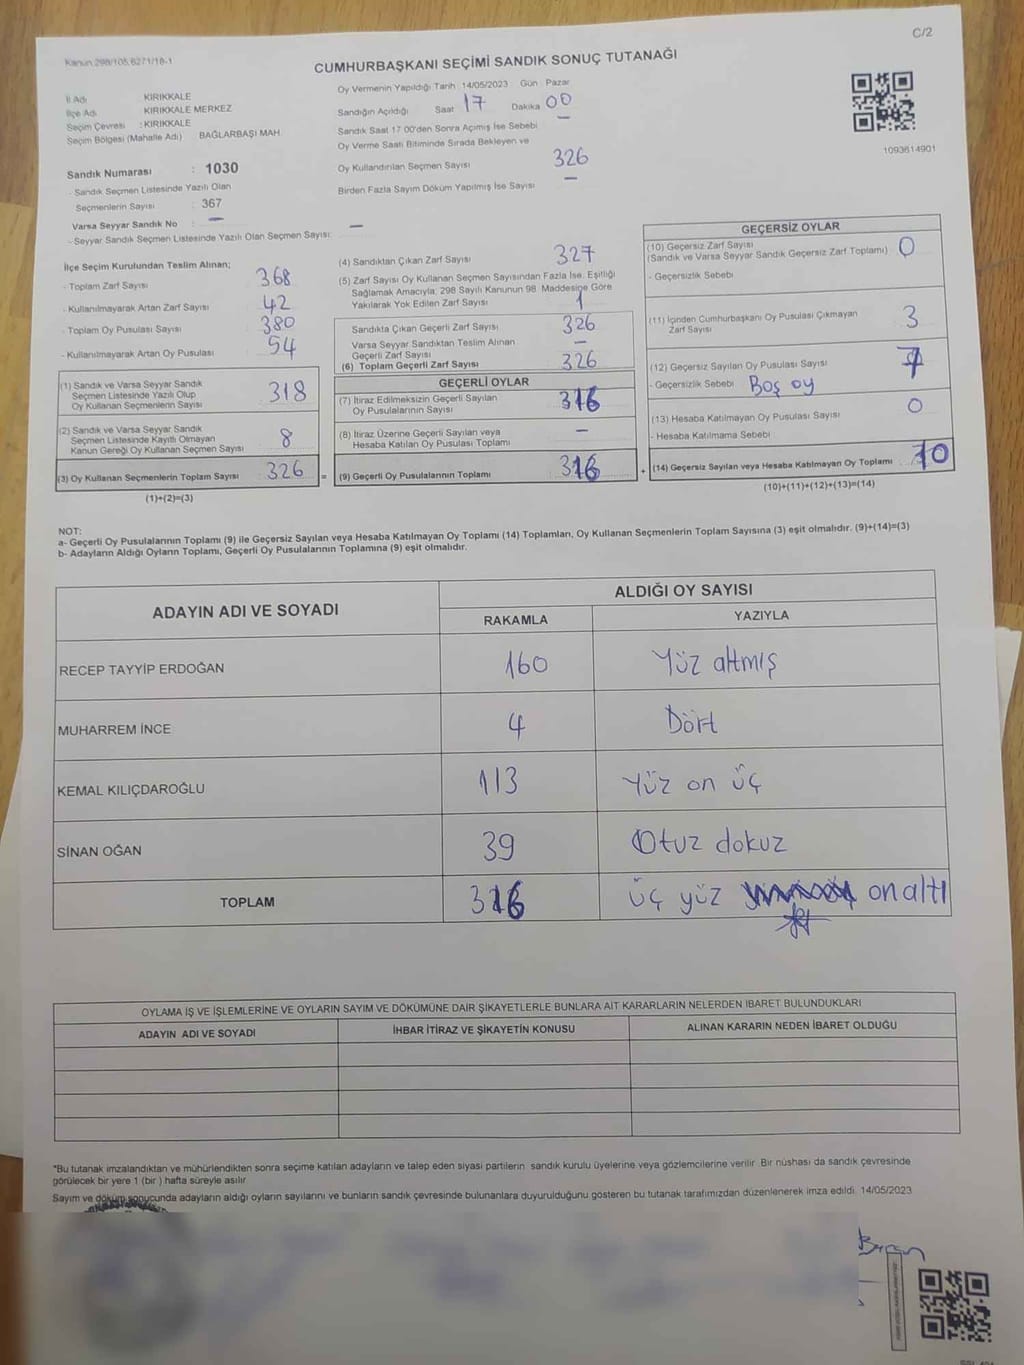 C/2
Kanun 298/105,6271/18-1
CUMHURBAŞKANI SEÇİMİ SANDIK SONUÇ TUTANAĞI
İl Adı KIRIKKALE
İlçe Adı KIRIKKALE MERKEZ
Seçim Çevresi : KIRIKKALE
Seçim Bölgesi (Mahalle Adı) BAĞLARBAŞI MAH.
Oy Vermenin Yapıldığı Tarih 14/05/2023 Gün Pazar
Sandığın Açıldığı Saat 17 Dakika 00
Sandık Saat 17 00'den Sonra Açımış İse Sebebi –
Oy Verme Saati Bitiminde Sırada Bekleyen ve
Oy Kullandırılan Seçmen Sayısı 326
Birden Fazla Sayım Döküm Yapılmış İse Sayısı –
1093614901
Sandık Numarası : 1030
- Sandık Seçmen Listesinde Yazılı Olan
Seçmenlerin Sayısı : 367
Varsa Seyyar Sandık No : –
- Seyyar Sandık Seçmen Listesinde Yazılı Olan Seçmen Sayısı: –
İlçe Seçim Kurulundan Teslim Alınan;
- Toplam Zarf Sayısı 368
- Kullanılmayarak Artan Zarf Sayısı 42
- Toplam Oy Pusulası Sayısı 380
- Kullanılmayarak Artan Oy Pusulası 54
(1) Sandık ve Varsa Seyyar Sandık
Seçmen Listesinde Yazılı Olup
Oy Kullanan Seçmenlerin Sayısı 318
(2) Sandık ve Varsa Seyyar Sandık
Seçmen Listesinde Kayıtlı Olmayan
Kanun Gereği Oy Kullanan Seçmen Sayısı 8
(3) Oy Kullanan Seçmenlerin Toplam Sayısı 326 =
(1)+(2)=(3)
(4) Sandıktan Çıkan Zarf Sayısı 327
(5) Zarf Sayısı Oy Kullanan Seçmen Sayısından Fazla İse, Eşitliği
Sağlamak Amacıyla; 298 Sayılı Kanunun 98. Maddesine Göre
Yakılarak Yok Edilen Zarf Sayısı 1
Sandıkta Çıkan Geçerli Zarf Sayısı 326
Varsa Seyyar Sandıktan Teslim Alınan
Geçerli Zarf Sayısı –
(6) Toplam Geçerli Zarf Sayısı 326
GEÇERLİ OYLAR
(7) İtiraz Edilmeksizin Geçerli Sayılan
Oy Pusulalarının Sayısı 316
(8) İtiraz Üzerine Geçerli Sayılan veya
Hesaba Katılan Oy Pusulası Toplamı –
(9) Geçerli Oy Pusulalarının Toplamı 316 +
GEÇERSİZ OYLAR
(10) Geçersiz Zarf Sayısı
(Sandık ve Varsa Seyyar Sandık Geçersiz Zarf Toplamı) 0
- Geçersizlik Sebebi
(11) İçinden Cumhurbaşkanı Oy Pusulası Çıkmayan
Zarf Sayısı 3
(12) Geçersiz Sayılan Oy Pusulası Sayısı 7
- Geçersizlik Sebebi Boş oy
(13) Hesaba Katılmayan Oy Pusulası Sayısı 0
- Hesaba Katılmama Sebebi
(14) Geçersiz Sayılan veya Hesaba Katılmayan Oy Toplamı 10
(10)+(11)+(12)+(13)=(14)
NOT:
a- Geçerli Oy Pusulalarının Toplamı (9) ile Geçersiz Sayılan veya Hesaba Katılmayan Oy Toplamı (14) Toplamları, Oy Kullanan Seçmenlerin Toplam Sayısına (3) eşit olmalıdır. (9)+(14)=(3)
b- Adayların Aldığı Oyların Toplamı, Geçerli Oy Pusulalarının Toplamına (9) eşit olmalıdır.
ADAYIN ADI VE SOYADI ALDIĞI OY SAYISI
RAKAMLA YAZIYLA
RECEP TAYYİP ERDOĞAN 160 Yüz altmış
MUHARREM İNCE 4 Dört
KEMAL KILIÇDAROĞLU 113 Yüz on üç
SİNAN OĞAN 39 Otuz dokuz
TOPLAM 316 üç yüz on altı
OYLAMA İŞ VE İŞLEMLERİNE VE OYLARIN SAYIM VE DÖKÜMÜNE DAİR ŞİKAYETLERLE BUNLARA AİT KARARLARIN NELERDEN İBARET BULUNDUKLARI
ADAYIN ADI VE SOYADI İHBAR İTİRAZ VE ŞİKAYETİN KONUSU ALINAN KARARIN NEDEN İBARET OLDUĞU
*Bu tutanak imzalandıktan ve mühürlendikten sonra seçime katılan adayların ve talep eden siyasi partilerin sandık kurulu üyelerine veya gözlemcilerine verilir. Bir nüshası da sandık çevresinde
görülecek bir yere 1 (bir) hafta süreyle asılır.
Sayım ve döküm sonucunda adayların aldığı oyların sayılarını ve bunların sandık çevresinde bulunanlara duyurulduğunu gösteren bu tutanak tarafımızdan düzenlenerek imza edildi. 14/05/2023